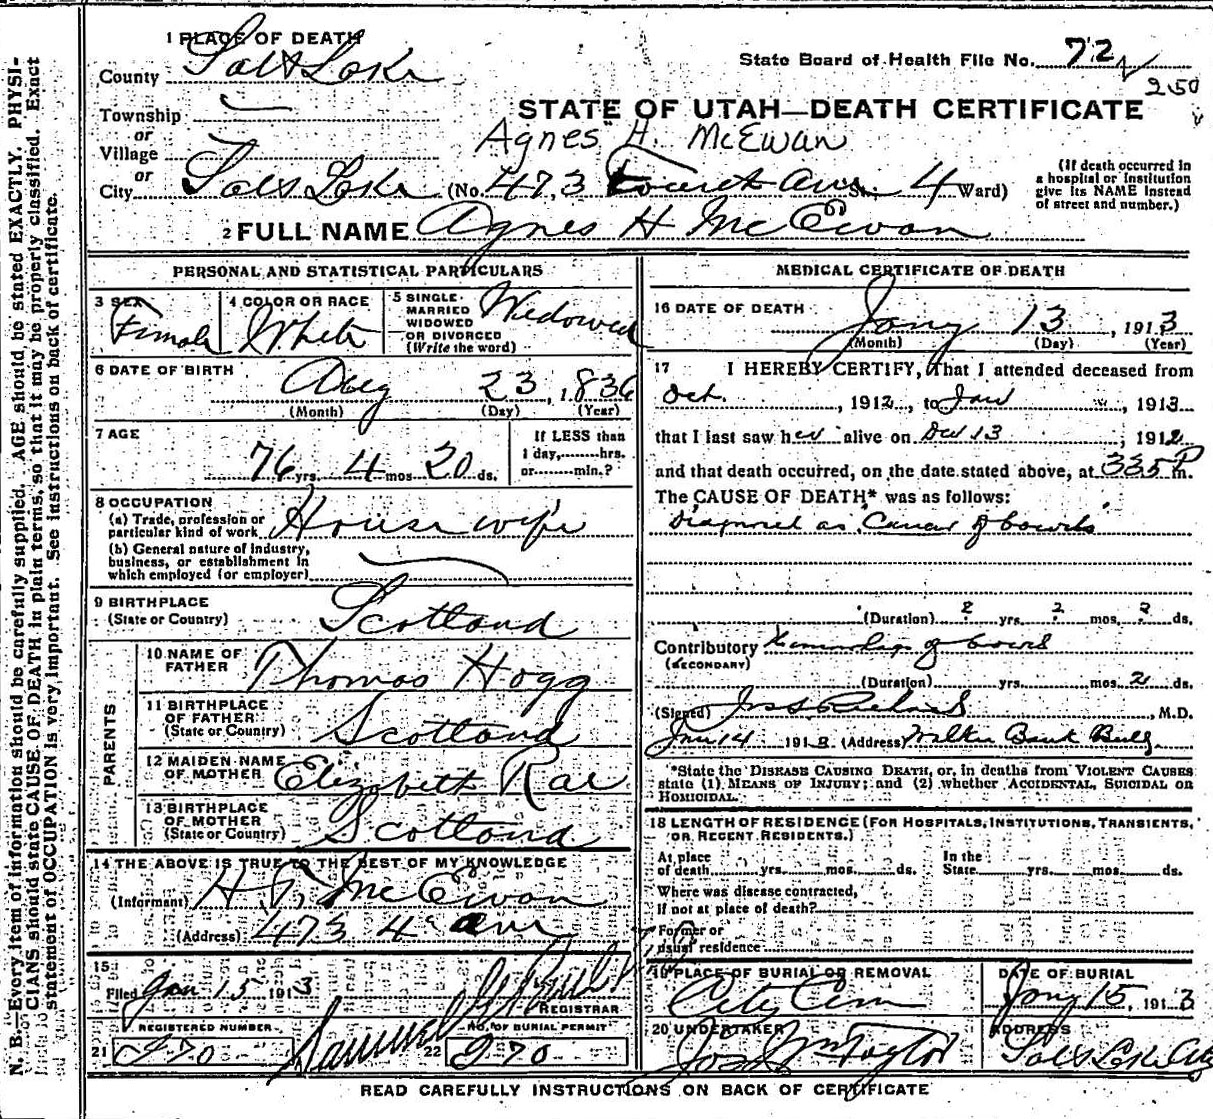 N. B.—Every item of information should be carefully supplied. AGE should be stated EXACTLY. PHYSI-
CIANS should state CAUSE OF DEATH in plain terms, so that it may be properly classified. Exact
statement of OCCUPATION is very important. See instructions on back of certificate.
1 PLACE OF DEATH
County Salt Lake
State Board of Health File No. 72
250
Township
or
Village
or
STATE OF UTAH—DEATH CERTIFICATE
Agnes H. McEwan
City Salt Lake (No. 473 Fourth Ave St. 4 Ward)
(If death occurred in
a hospital or institution
give its NAME instead
of street and number.)
2 FULL NAME Agnes H McEwan
PERSONAL AND STATISTICAL PARTICULARS
3 SEX Female
4 COLOR OR RACE White
5 SINGLE
MARRIED
WIDOWED
OR DIVORCED
(Write the word) Widowed
6 DATE OF BIRTH Aug 23, 1836
(Month) (Day) (Year)
7 AGE 76 yrs. 4 mos. 20 ds.
If LESS than
1 day, hrs.
or min.?
8 OCCUPATION
(a) Trade, profession or
particular kind of work Housewife
(b) General nature of industry,
business, or establishment in
which employed (or employer)
9 BIRTHPLACE
(State or Country) Scotland
PARENTS
10 NAME OF
FATHER Thomas Hogg
11 BIRTHPLACE
OF FATHER
(State or Country) Scotland
12 MAIDEN NAME
OF MOTHER Elizabeth Rae
13 BIRTHPLACE
OF MOTHER
(State or Country) Scotland
14 THE ABOVE IS TRUE TO THE BEST OF MY KNOWLEDGE
(Informant) H. T. McEwan
(Address) 473 4" Ave
15
Filed Jan 15 1913
REGISTRAR
REGISTERED NUMBER
21 270
NO. OF BURIAL PERMIT
22 270
MEDICAL CERTIFICATE OF DEATH
16 DATE OF DEATH Jany 13, 1913
(Month) (Day) (Year)
17 I HEREBY CERTIFY, That I attended deceased from
Oct. , 1912, to Jan , 1913
that I last saw her alive on Dec 13 , 1912
and that death occurred, on the date stated above, at 335 P m.
The CAUSE OF DEATH* was as follows:
Diagnosed as "Cancer of bowels"
(Duration) ? yrs. ? mos. ? ds.
Contributory of bowels
(SECONDARY)
(Duration) yrs. mos. 2 ds.
(Signed) Richards, M.D.
Jan 14 191 (Address) Walker Bank Bldg
*State the DISEASE CAUSING DEATH, or, in deaths from VIOLENT CAUSES
state (1) MEANS OF INJURY; and (2) whether ACCIDENTAL, SUICIDAL OR
HOMICIDAL.
18 LENGTH OF RESIDENCE (FOR HOSPITALS, INSTITUTIONS, TRANSIENTS,
OR RECENT RESIDENTS.)
At place
of death yrs. mos. ds.
In the
State yrs. mos. ds.
Where was disease contracted,
If not at place of death?
Former or
usual residence
19 PLACE OF BURIAL OR REMOVAL
City Cem
DATE OF BURIAL
Jany 15, 1913
20 UNDERTAKER
Jos Wm Taylor
ADDRESS
Salt Lake City
READ CAREFULLY INSTRUCTIONS ON BACK OF CERTIFICATE